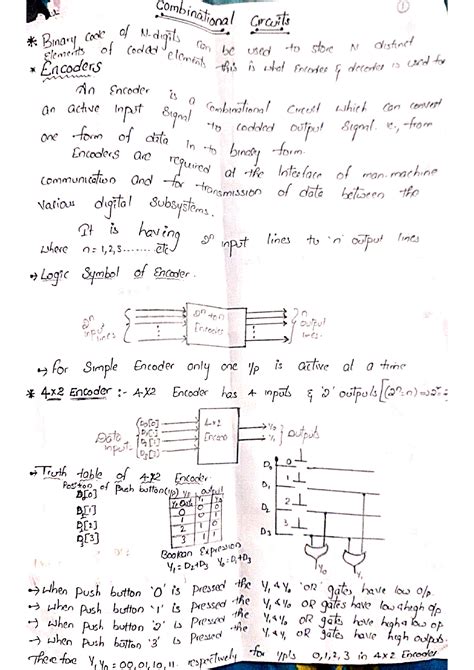 Combinational Circuits
①
* Binary code of N-digits can be used to store N distinct
elements of coded elements this is what Encoder & decoder is used for
* Encoders
An Encoder is a Combinational Circuit which can convert
an active Input Signal to codded output Signal. i.e., from
one form of data In to binary form.
Encoders are required at the Interface of man-machine
communication and for transmission of data between the
various digital Subsystems.
It is having 2ⁿ input lines to 'n' output lines
where n=1,2,3........etc
→ Logic Symbol of Encoder.
2ⁿ
lines
2ⁿ to n
Encoder
n
output
lines
→ for Simple Encoder only one i/p is active at a time
* 4x2 Encoder :- 4x2 Encoder has 4 inputs & '2' outputs
Data
inputs
D₀[0]
D₁[1]
D₂[2]
D₃[3]
4x2
Y₀
Y₁
outputs
→ Truth table of 4x2 Encoder
Position of push button(i/p)
D[0]
D[1]
D[2]
D[3]
output
Y₁ Y₀
0 0
0 1
1 0
1 1
Boolean Expression
Y₁ = D₂+D₃ Y₀ = D₁+D₃
D₀ 0
D₁ 1
D₂ 2
D₃ 3
Y₁ Y₀
→ When Push button '0' is pressed the Y₁ & Y₀ 'OR' gates have low o/p.
→ when Push button '1' is Pressed the Y₁ & Y₀ OR gates have low & high o/p
→ when push button '2' is Pressed the Y₁ & Y₀ OR gates have high & low o/p
→ when push button '3' is Pressed the Y₁ & Y₀ OR gates have high output.
There foe Y₁, Y₀ = 00, 01, 10, 11 respectively for i/pls 0,1,2,3 in 4x2 Encoder